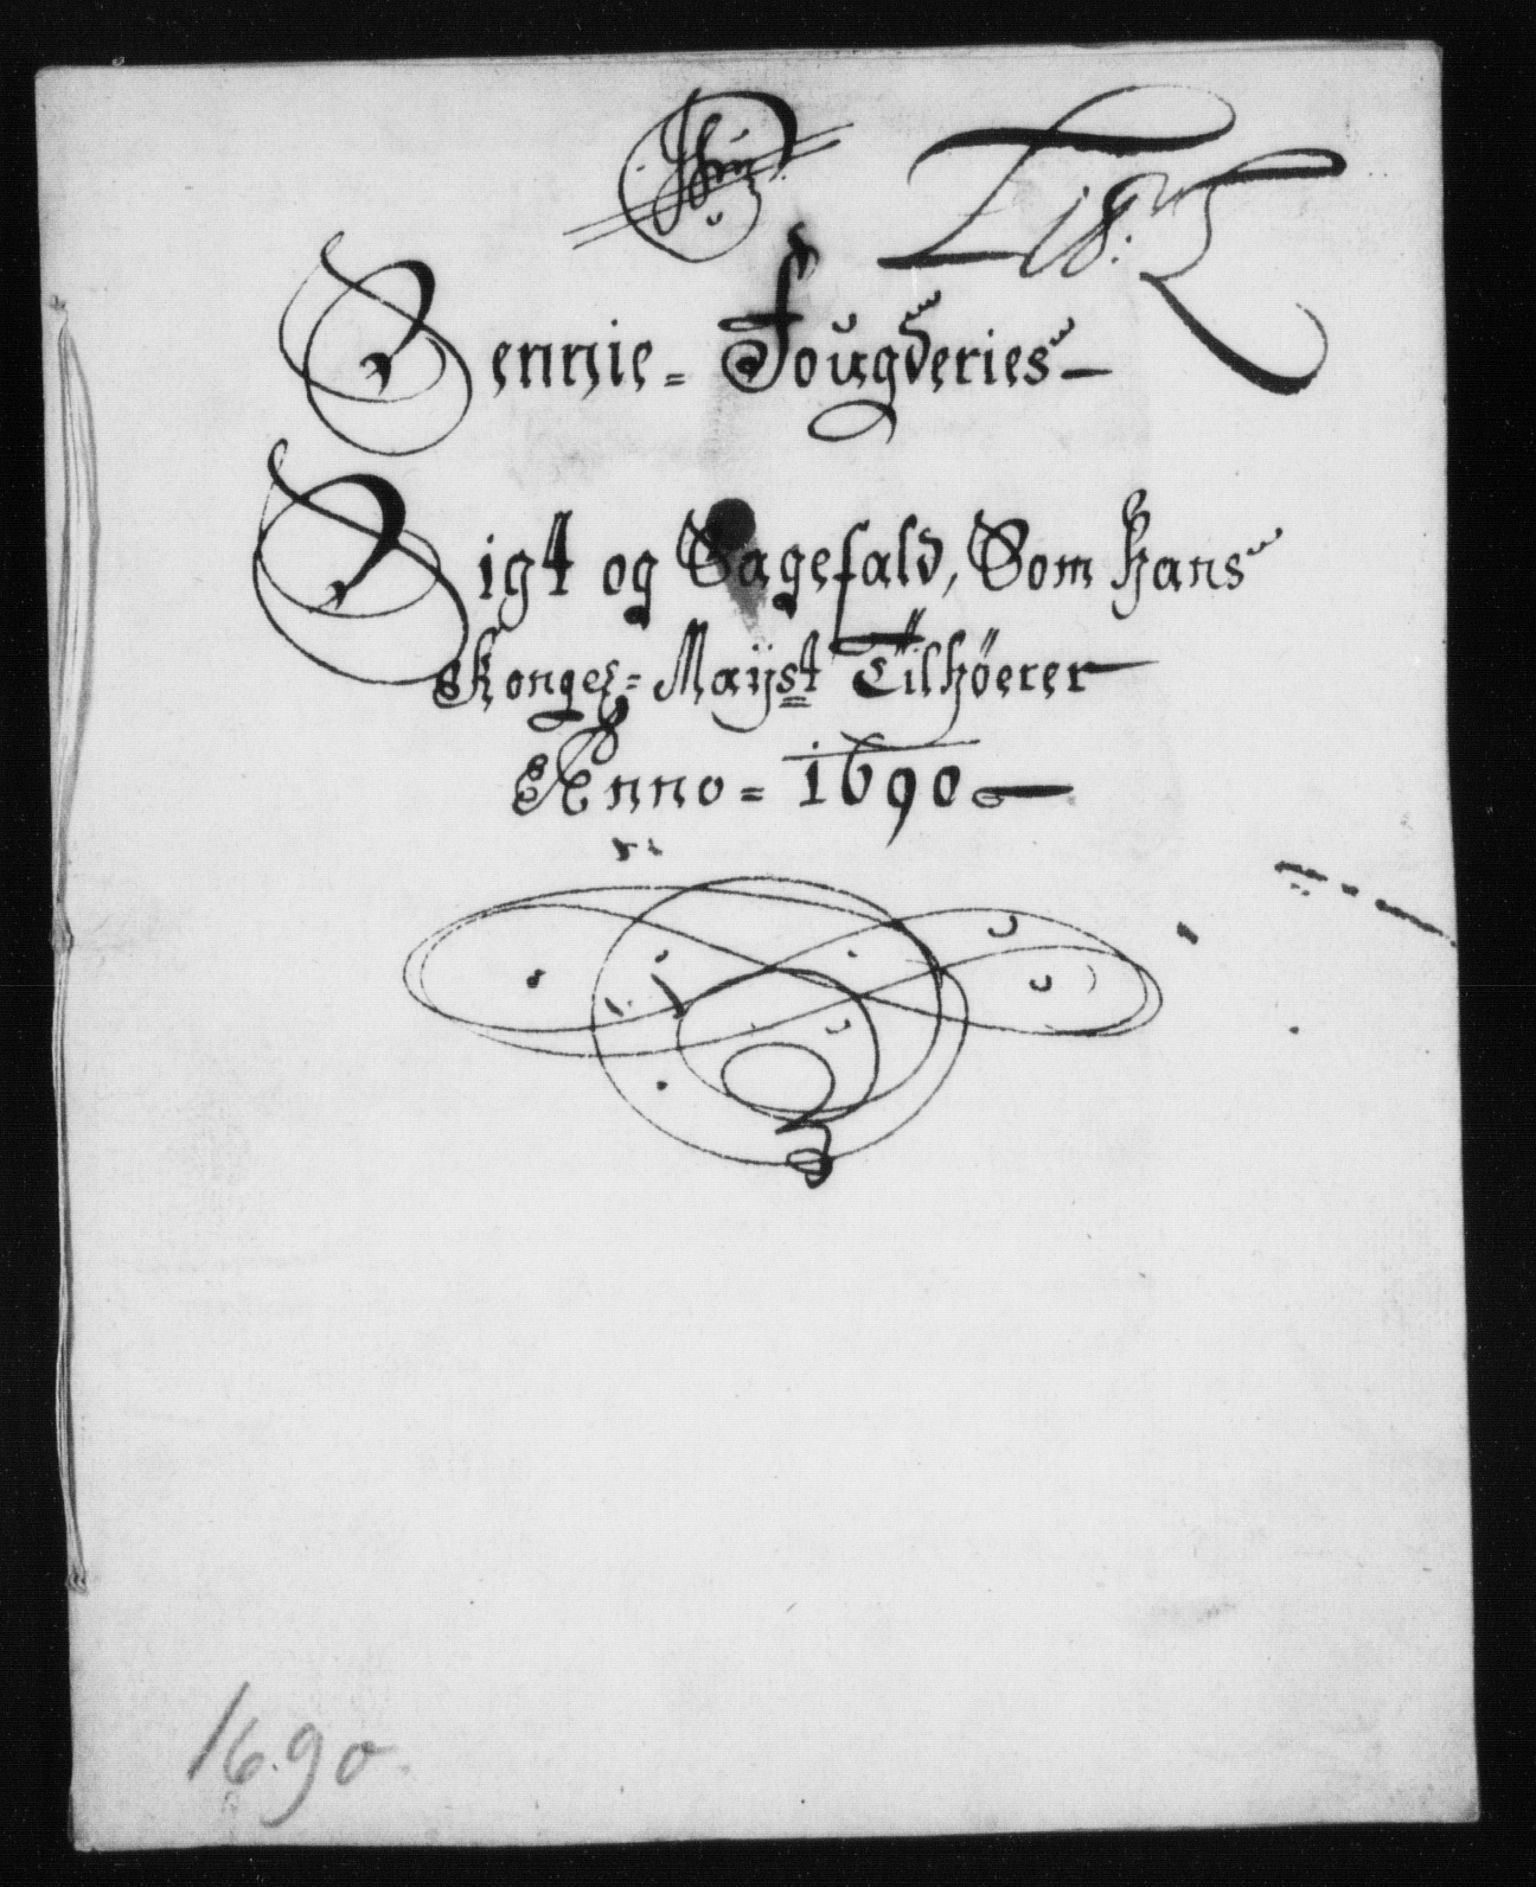 18:
Sennie= Fougderies
Sigt og Sagefald, Som Hans
Konges= Maÿst Tilhöerer
Anno= 1690
1690